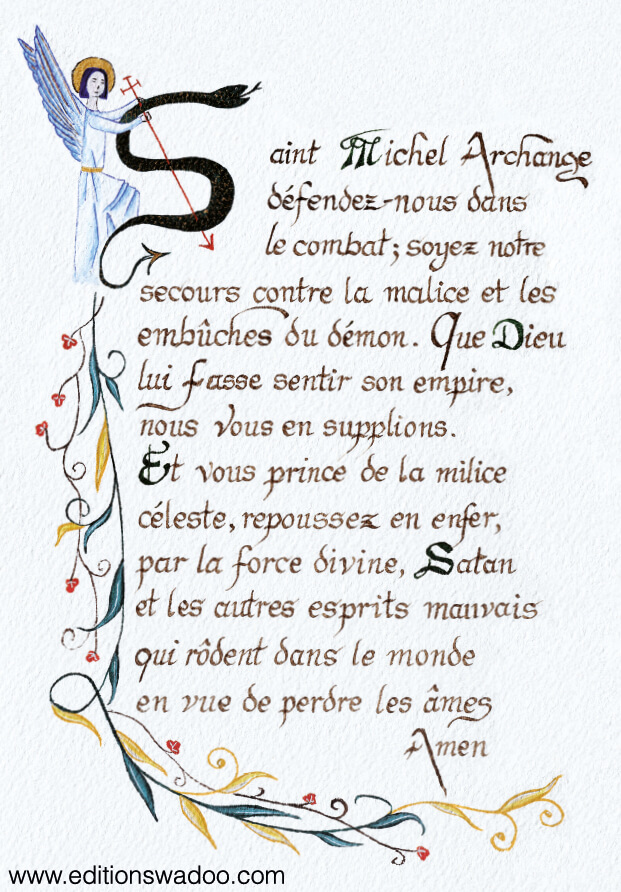 Saint Michel Archange
défendez-nous dans
le combat; soyez notre
secours contre la malice et les
embûches du démon. Que Dieu
lui fasse sentir son empire,
nous vous en supplions.
Et vous prince de la milice
céleste, repoussez en enfer,
par la force divine, Satan
et les autres esprits mauvais
qui rôdent dans le monde
en vue de perdre les âmes
Amen
www.editionswadoo.com